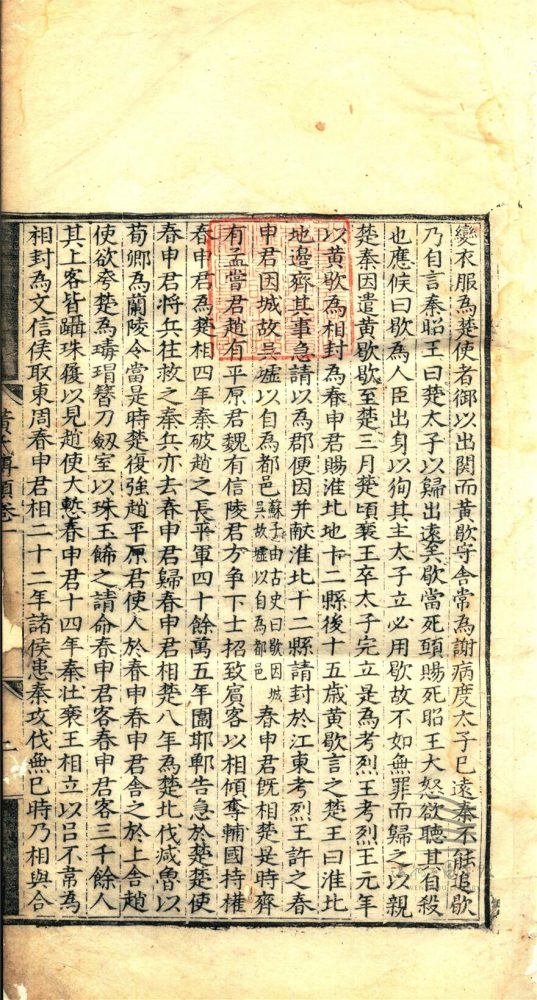 變衣服為楚使者御以出関而黄歇守舍常為謝病度太子已遠秦不能追歇
乃自言秦昭王曰楚太子以歸出遠矣歇當死頭賜死昭王大怒欲聽其自殺
也應候曰歇為人臣出身以狥其主太子立必用歇故不如無罪而歸之以親
楚秦因遣黄歇歇至楚三月楚頃襄王卒太子完立是為考烈王考烈王元年
以黄歇為相封為春申君賜淮北地十二縣後十五歲黄歇言之楚王曰淮北
地邉齊其事急請以為郡便因并献淮北十二縣請封於江東考烈王許之春
申君因城故吴墟以自為都邑蘇子由古史曰歇因城吴故墟以自為都邑春申君既相楚是時齊
有孟嘗君趙有平原君魏有信陵君方争下士招致賔客以相傾奪輔國持權
春申君為楚相四年秦破趙之長平軍四十餘萬五年圍邯鄲告急於楚楚使
春申君将兵往救之秦兵亦去春申君歸春申君相楚八年為楚北伐减魯以
荀卿為蘭陵令當是時楚復強趙平原君使人於春申春申君舍之於上舍趙
使欲夸楚為瑇瑁簪刀劔室以珠玉餙之請命春申君客春申君客三千餘人
其上客皆躡珠履以見趙使大慙春申君十四年秦壮襄王相立以吕不韋為
相封為文信侯取東周春申君相二十二年諸侯患秦攻伐無已時乃相與合